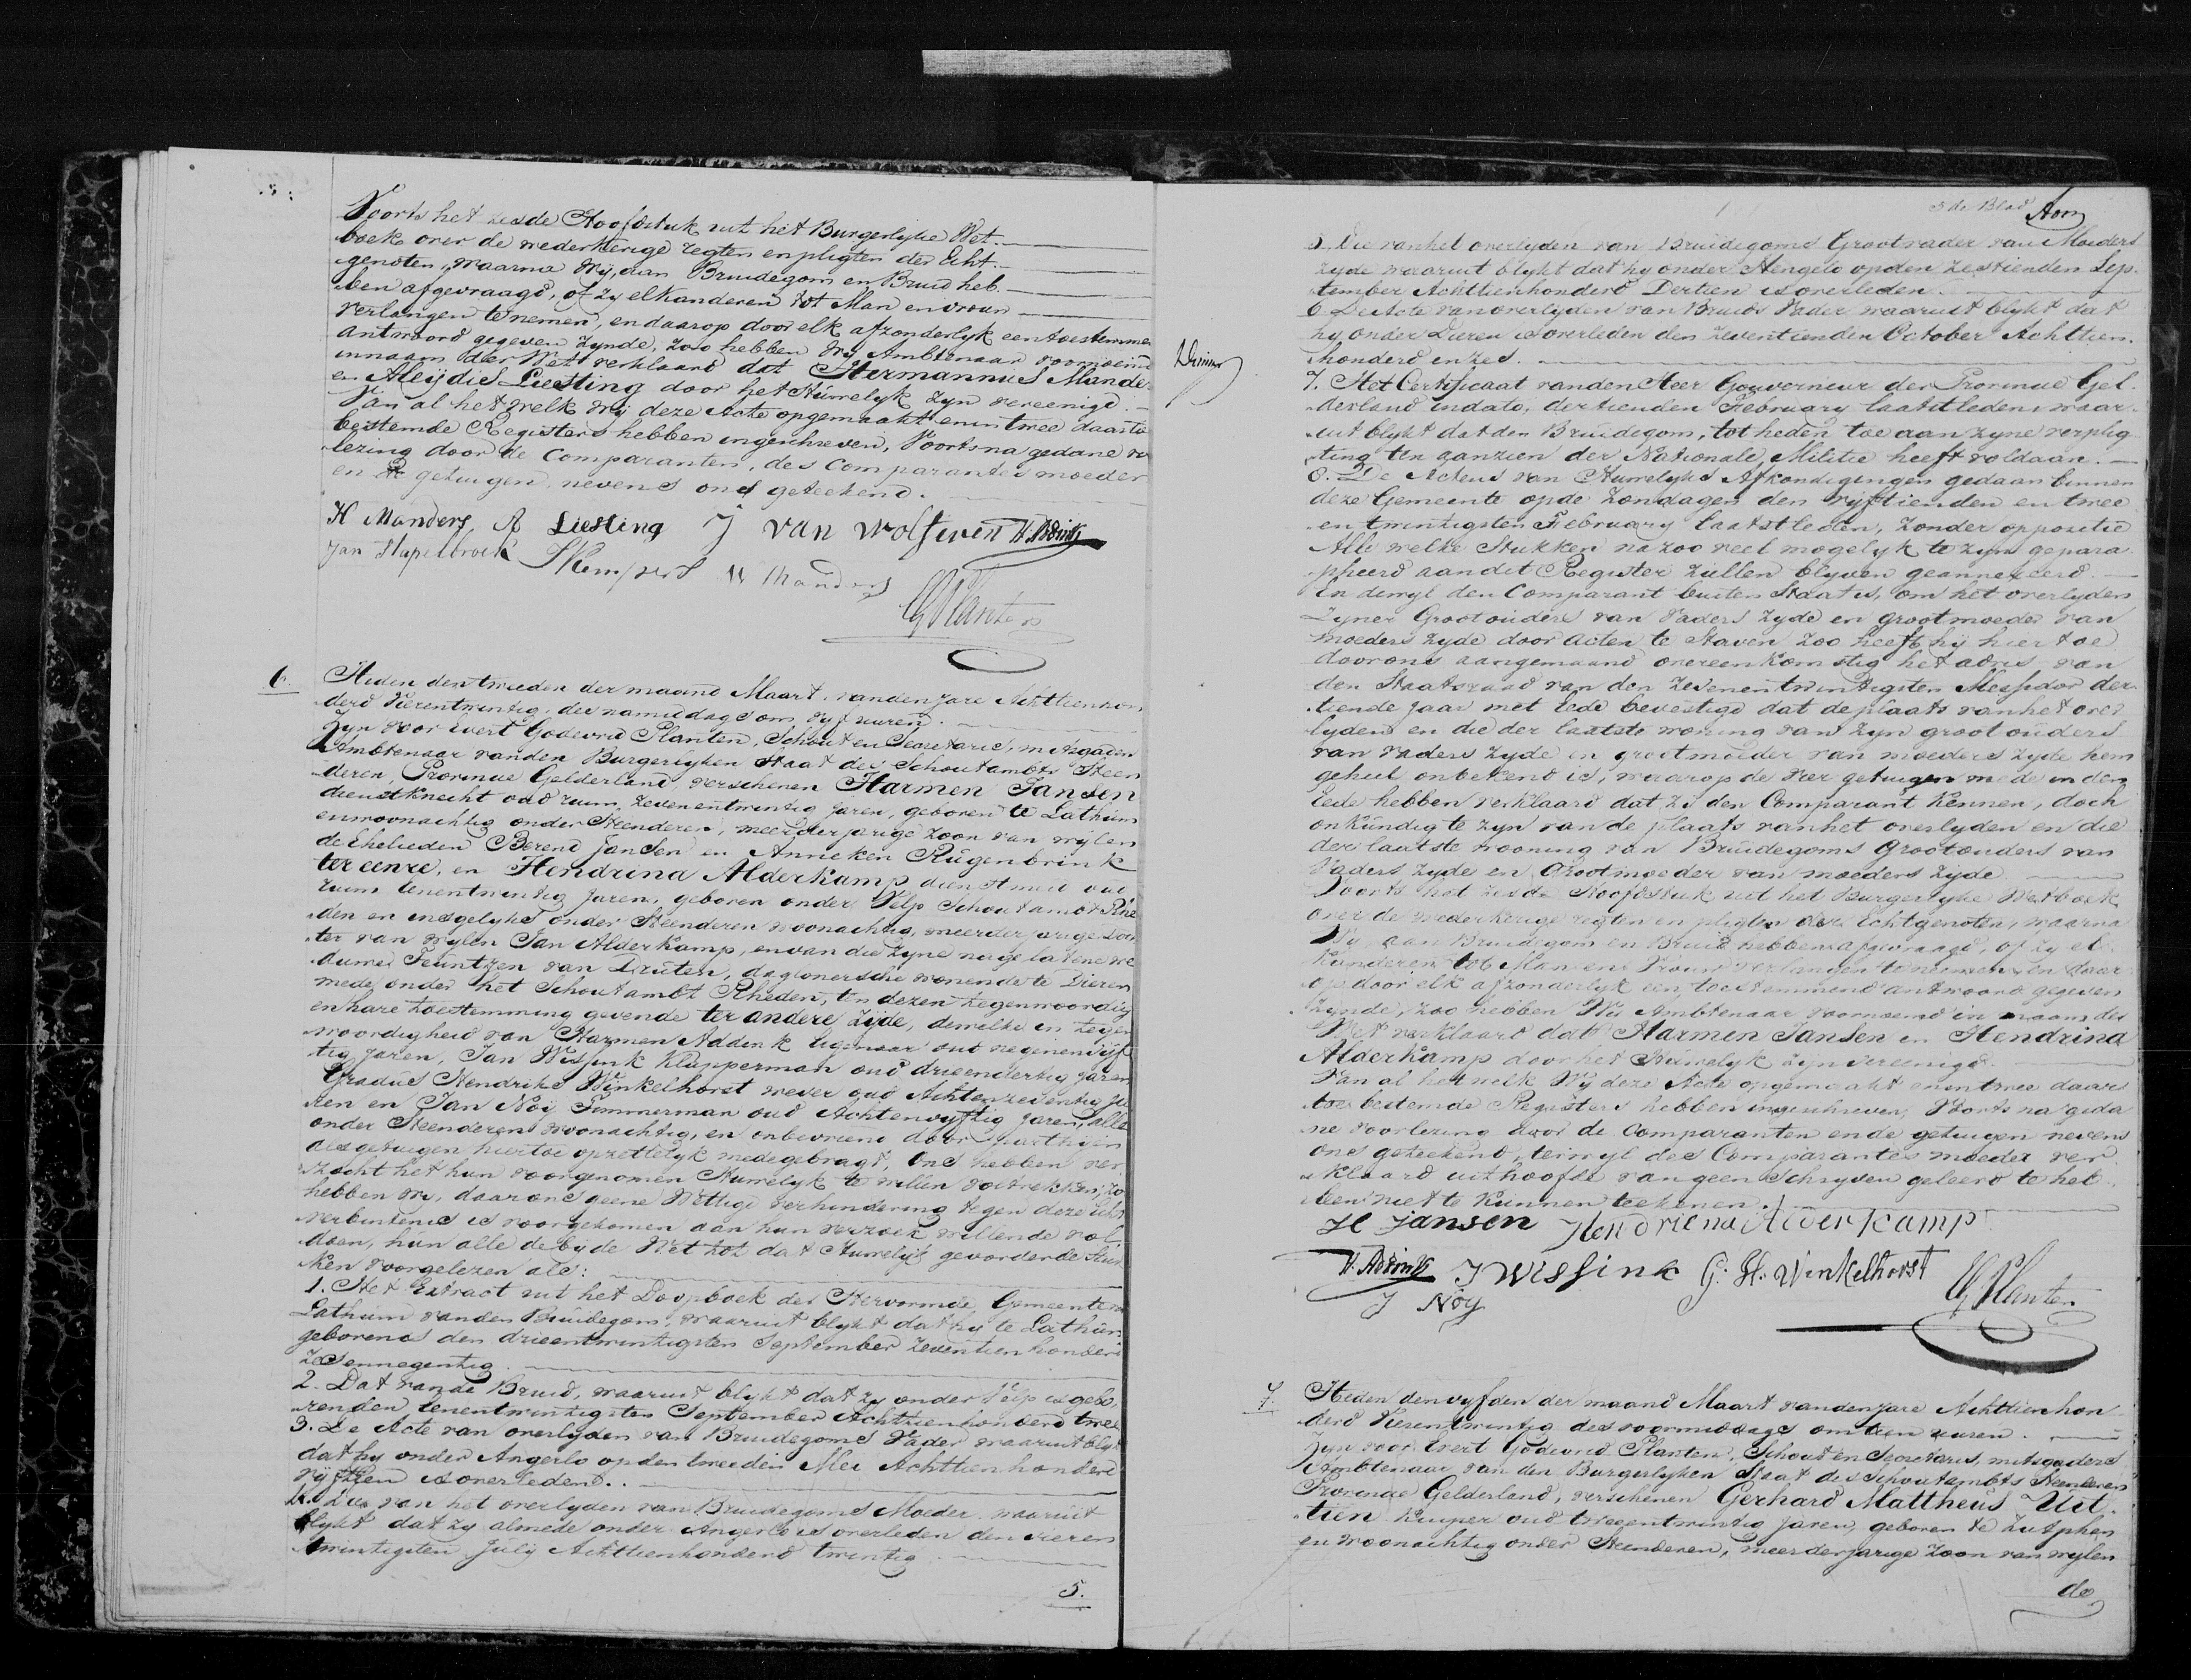 Voorts het zesde Hoofdstuk uit het Burgerlyke Wet-
boek over de wederkerige regten en pligten der Echt-
genoten, waarna Wy, aan Bruidegom en Bruid heb-
ben afgevraagd, of zy elkanderen tot Man en vrouw
verlangen te nemen, en daarop door elk afzonderlyk een toestemmen
antwoord gegeven zynde, zoo hebben Wy Ambtenaar voornoemd
in naam der Wet verklaard dat Hermannus Manders
en Aleijdis Liesting door het Huwelyk zyn vereenigd.
Van al het welk wy deze Acte opgemaakt en in twee daarto
bestemde Registers hebben ingeschreven, Voorts na gedane vo
lezing door de Comparanten, des Comparants moeder
en getuigen nevens ons geteekend.
H Manders A Liesting J van Wolferen H. Addink
Jan Hupelbroek Kempers Manders
EG Planten
6. Heden den tweeden der maand Maart, van den jare Achttienhon
derd Vierentwintig, des namiddags om vyf uuren.
Zyn voor Evert Godevrid Planten, Schout en Secretaris, mitsgaders
Ambtenaar van den Burgerlyken Staat des Schoutambts Steen
deren, Provincie Gelderland, verschenen Harmen Jansen
dienstknecht oud ruim zevenentwintig jaren, geboren te Lathum
en woonachtig onder Steenderen, meerderjarige zoon van wylen
de Ehelieden Berend Jansen en Anneken Rugenbrink
ter eenre, en Hendrina Alderkamp dienstmeid oud
ruim eenentwintig jaren, geboren onder Velp Schoutambt Rhe
den en insgelyks onder Steenderen woonachtig, meerderjarige Doch
ter van wylen Jan Alderkamp, en van die zyne nagelatene we
duwe Teuntzen van Druten, dagloonersche wonende te Dieren
mede onder het Schoutambt Rheden, ten dezen tegenwoordig
en hare toestemming gevende ter andere zyde, dewelke in tegen
woordigheid van Harmen Addink Eigenaar oud negenenvyf
tig jaren, Jan Wissink Klapperman oud drieendertig jaren
Gradus Hendriks Winkelhorst wever oud Achtenzeventig ja
ren en Jan Noy Timmerman oud Achtenvyftig jaren, alle
onder Steenderen woonachtig, en onbevreemd door parthyen
als getuigen hiertoe opzettelyk medegebragt, Ons hebben ver
zocht het hun voorgenomen Huwelyk te willen voltrekken; zo
hebben wy, daar ons geene Wettige verhindering tegen deze echt
verbintenis is voorgekomen aan hun verzoek willende vol
doen, hun alle de by de Wet tot dat Huwelyk gevorderde Stuk
ken voorgelezen als:
1. Het Extract uit het Doopboek der Hervormde Gemeente van
Lathum van den Bruidegom, waaruit blykt dat hy te Lathum
geboren is den drieentwintigsten September Zeventienhonderd
Zesennegentig.
2. Dat van de Bruid, waaruit blykt dat zy onder Velp is gebo
ren den eenentwintigsten September Achttienhonderd twee
3. De Acte van overlyden van Bruidegoms Vader waaruit blykt
dat hy onder Angerlo op den tweeden Mei Achttienhonderd
vyftien is overleden.
4. Die van het overlyden van Bruidegoms Moeder waaruit
blykt dat zy almede onder Angerlo is overleden den vieren
twintigsten July Achttienhonderd twintig.
5.
5de Blad
5. Die van het overlyden van Bruidegoms Grootvader van Moeders
zyde waaruit blykt dat hy onder Hengelo op den zestienden Sep-
tember Achttienhonderd Dertien is overleden.
6. De Acte van overlyden van Bruids Vader waaruit blykt dat
hy onder Dieren is overleden den zeventienden October Achttien-
honderd en zes.
7. Het Certificaat van den Heer Gouverneur der Provincie Gel-
derland in dato, dertienden February laatstleden waar-
uit blykt dat den Bruidegom, tot heden toe aan zyne verplig
ting ten aanzien der Nationale Militie heeft voldaan.
8. De Actens van Huwelyks Afkondigingen gedaan binnen
deze Gemeente op de Zondagen den vyftienden en twee
en twintigsten February laatstleden, zonder oppositie
Alle welke Stukken na zoo veel mogelyk te zyn gepara
pheerd aan dit Register zullen blyven geannexeerd.
En dewyl den Comparant buiten Staat is, om het overlyden
Zyner Grootouders van Vaders zyde en grootmoeder van
moeders zyde door acten te Staven zoo heeft hy hier toe
door ons aangemaand overeenkomstig het advis van
den Staatsraad van den zevenentwintigsten Messidor der-
tiende jaar met Eede bevestigd dat de plaats van het over
lyden en die der laatste woning van zyn grootouders
van vaders zyde en grootmoeder van moeders zyde hem
geheel onbekend is, waarop de vier getuigen mede in den
Eede hebben verklaard dat zy den Comparant kennen, doch
onkundig te zyn van de plaats van het overlyden en die
der laatste wooning van Bruidegoms Grootouders van
Vaders zyde en Grootmoeder van moeders zyde
Voorts het zesde Hoofdstuk uit het Burgerlyke Wetboek
over de wederkerige regten en pligten der Echtgenoten, waarna
Wy aan Bruidegom en Bruid hebben afgevraagd, of zy el-
kanderen tot Man en Vrouw verlangen te nemen en daar
op door elk afzonderlyk een toestemmend antwoord gegeven
zynde, zoo hebben Wy Ambtenaar voornoemd in naam der
Wet verklaard dat Harmen Jansen en Hendrina
Alderkamp door het Huwelyk zyn vereenigd.
Van al het welk Wy deze Acte opgemaakt en in twee daar
toe bestemde Registers hebben ingeschreven, Voorts na geda
ne voorlezing door de Comparanten en de getuigen nevens
ons geteekend, terwyl des Comparantes moeder ver
klaard uit hoofde van geen Schryven geleerd te heb-
ben niet te kunnen teekenen.
H Jansen Hendriena Alderkamp
H. Addink J Wissink G. H. Winkelhorst
J Noy EG Planten
7. Heden den vyfden der maand Maart van den jare Achttienhon
derd Vierentwintig des voormiddags om tien uuren.
Zyn voor Evert Godevrid Planten, Schout en Secretaris, mitsgaders
Ambtenaar van den Burgerlyken Staat des Schoutambts Steenderen
Provincie Gelderland, verschenen Gerhard Mattheus Uit-
tien Kuyper oud tweeentwintig jaren, geboren te Zutphen
en woonachtig onder Steenderen, meerderjarige zoon van wylen
de